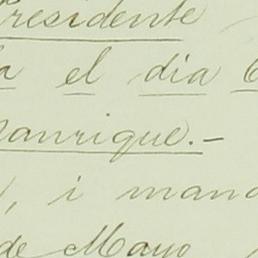 Presidente
el dia
Manrique.-
, i mand
de Mayo